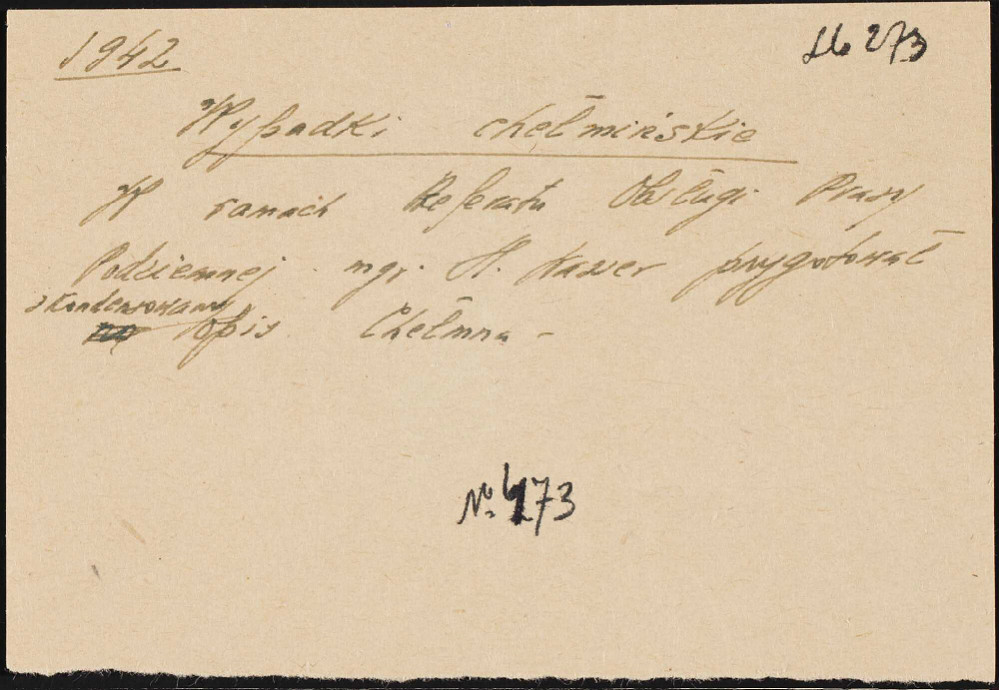 1942
Lb 273
Wypadki chełmińskie
W ramach Referatu Obsługi Prasy
Podziemnej mgr. H. Wasser przygotował
skondensowany
opis Chełmna -
No. 273